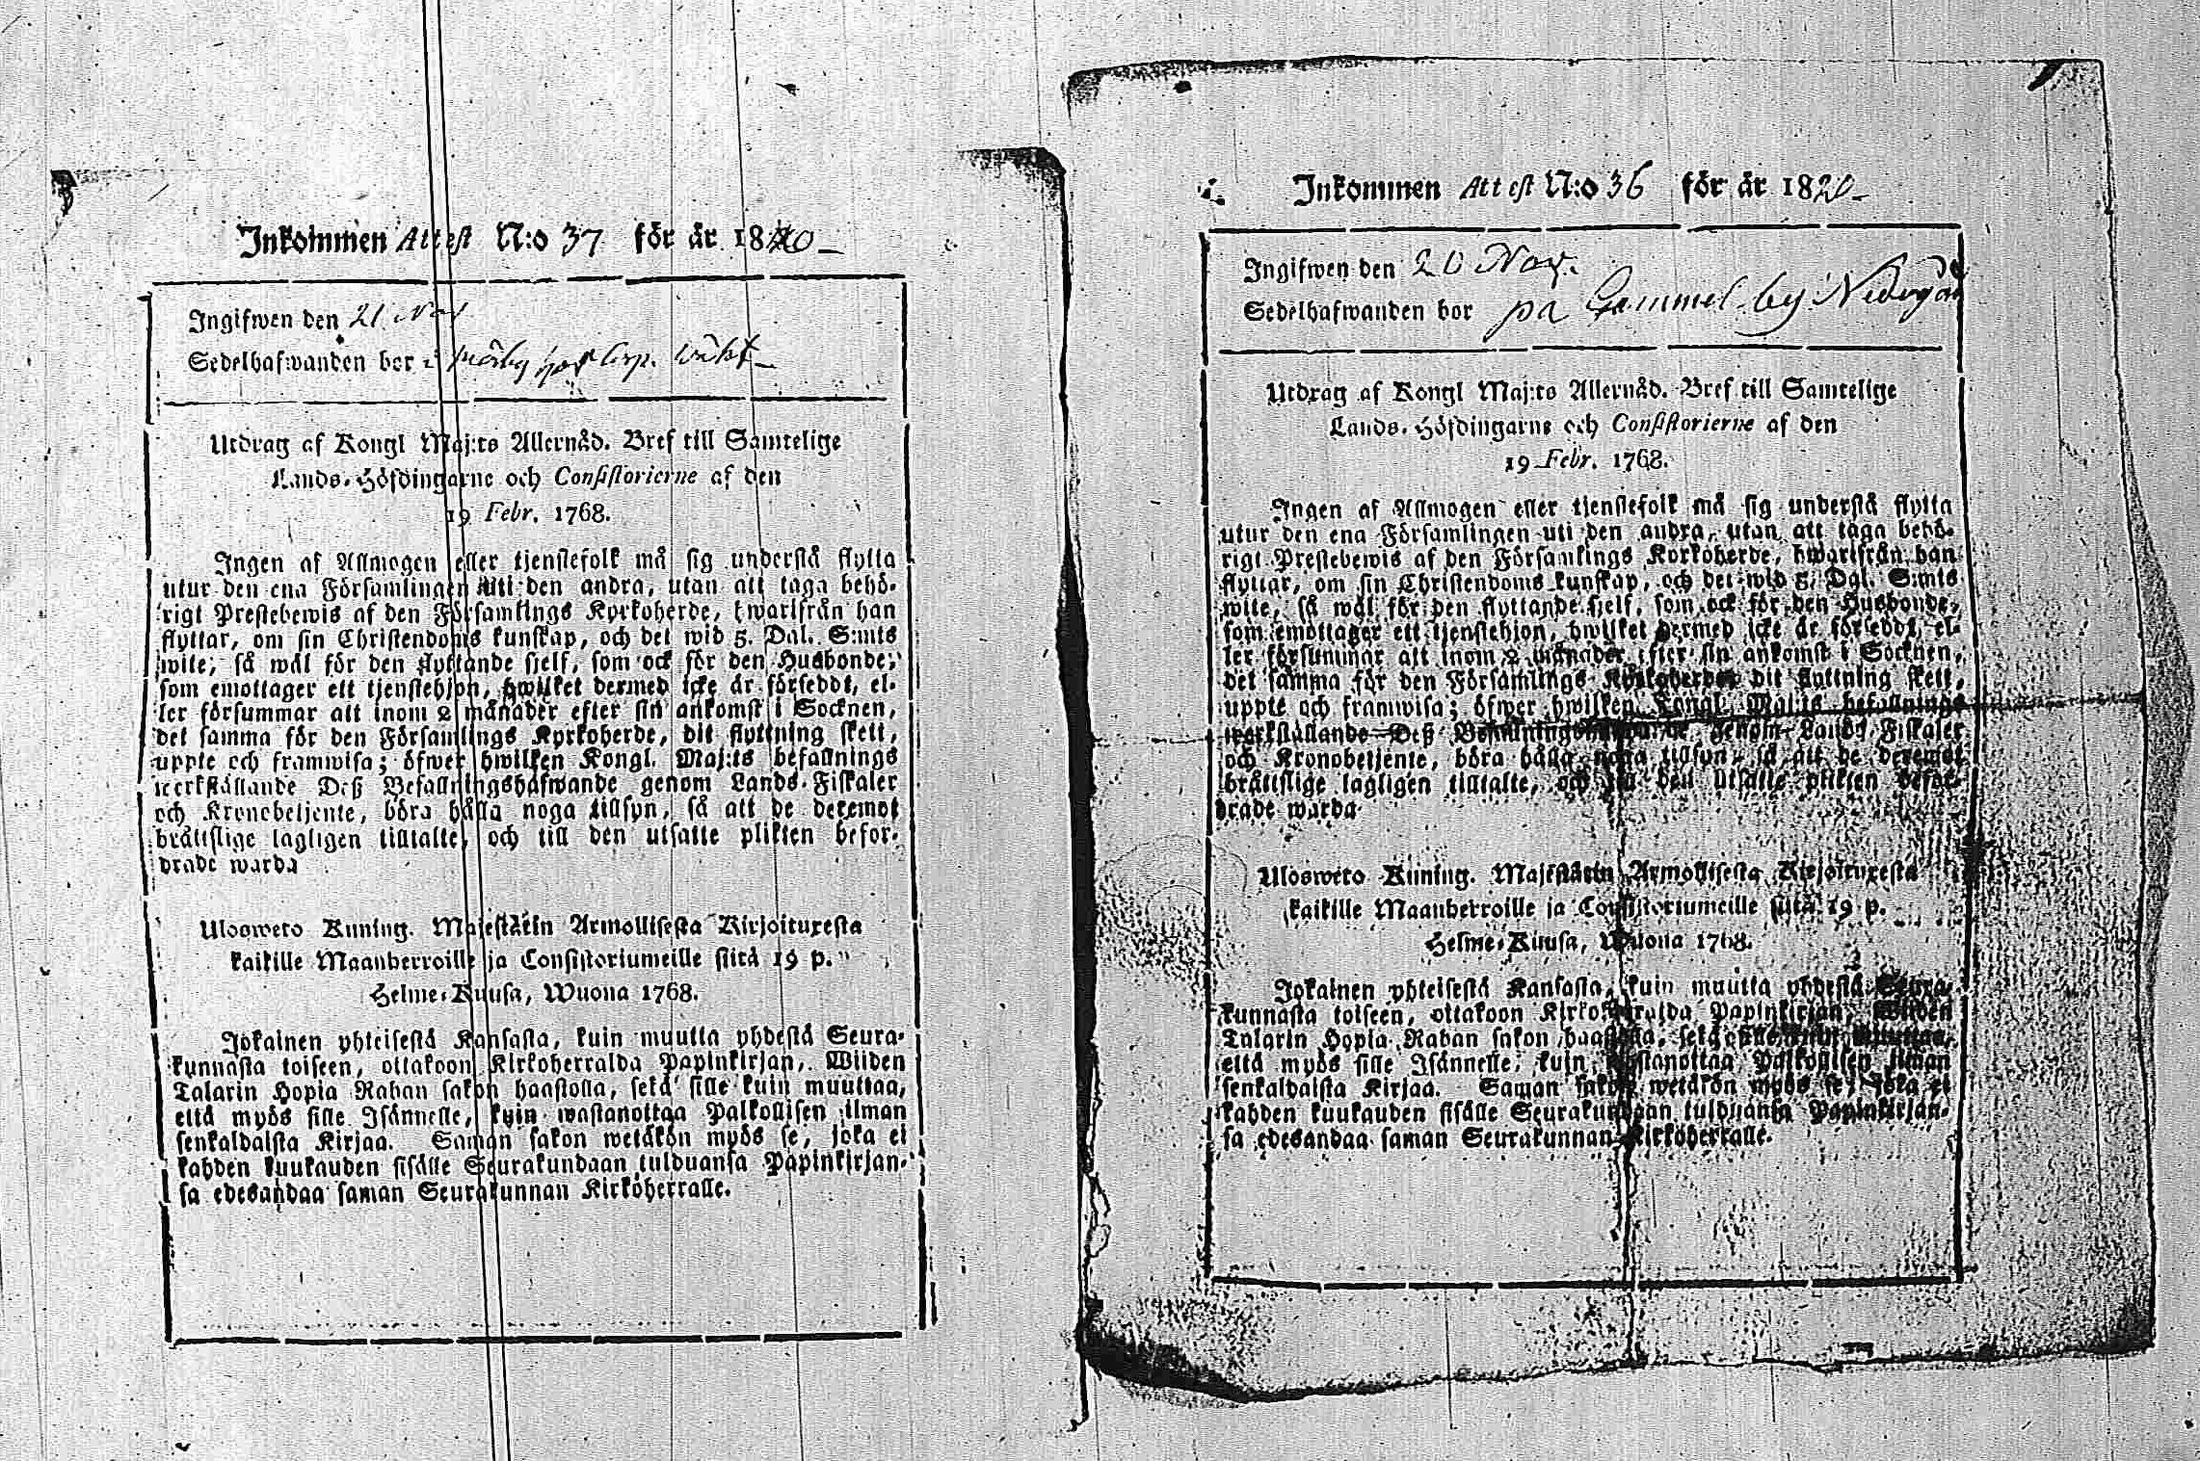 Inkommen Attest N:o 37 för år 1820
Ingifwen den 21 Nov
Sedelhafwanden bor
Utdrag af Kongl Maj:ts Allernåd. Bref till Samtelige
Lands-Höfdingarne och Consistorierne af den
19 Febr. 1768.
Ingen af Allmogen eller tjenstefolk må sig understå flytta
utur den ena Församlingen uti den andra, utan att taga behö-
rigt Prestebewis af den Församlings Kyrkoherde, hwarifrån han
flyttar, om sin Christendoms kunskap, och det wid 5. Dal. S:mts
wite, så wäl för den flyttande sjelf, som ock för den Husbonde,
som emottager ett tjenstehjon, hwilket dermed icke är försedt, el-
ler försummar att inom 2 månader efter sin ankomst i Socknen,
det samma för den Församlings Kyrkoherde, dit flyttning skett,
uppte och framwisa; öfwer hwilken Kongl. Maj:ts befallnings
werkställande Deß Befallningshafwande genom Lands-Fiskaler
och Kronobetjente, böra hålla noga tillsyn, så att de deremot
bråttslige lagligen tilltalte, och till den utsatte plikten befor-
drade warda
Ulosweto Kuning. Majestätin Armollisesta Kirjoituxesta
kaikille Maanherroille ja Consistoriumeille siitä 19 p.
Helme-Kuusa, Wuona 1768.
Jokainen yhteisestä Kansasta, kuin muutta yhdestä Seura-
kunnasta toiseen, ottakoon Kirkoherralda Papinkirjan, Wiiden
Talarin Hopia Rahan sakon haastolla, sekä sille kuin muuttaa,
että myös sille Isännelle, kuin wastanottaa Palkollisen ilman
senkaldaista Kirjaa. Saman sakon wetäkön myös se, joka ei
kahden kuukauden sisälle Seurakundaan tulduansa Papinkirjan-
sa edesandaa saman Seurakunnan Kirköherralle.
Inkommen Attest N:o 36 för år 1820
Ingifwen den 20 Nov.
Sedelhafwanden bor på Gammelby
Utdrag af Kongl Maj:ts Allernåd. Bref till Samtelige
Lands-Höfdingarne och Consistorierne af den
19 Febr. 1768.
Ingen af Allmogen eller tjenstefolk må sig understå flytta
utur den ena Församlingen uti den andra, utan att taga behö-
rigt Prestebewis af den Församlings Korkoherde, hwarifrån han
flyttar, om sin Christendoms kunskap, och det wid 5. Dal. S:mts
wite, så wäl för den flyttande sjelf, som ock för den Husbonde,
som emottager ett tjenstehjon, hwilket dermed icke är försedt, el-
ler försummar att inom 2 månader efter sin ankomst i Socknen,
det samma för den Församlings Kyrkoherde, dit flyttning skett,
uppte och framwisa; öfwer hwilken Kongl. Maj:ts befallnings
werkställande Deß Befallningshafwande genom Lands-Fiskaler
och Kronobetjente, böra hålla noga tillsyn, så att de deremot
bråttslige lagligen tilltalte, och till den utsatte plikten befor-
drade warda
Ulosweto Kuning. Majestätin Armollisesta Kirjoituxesta
kaikille Maanherroille ja Consistoriumeille siitä 19 p.
Helme-Kuusa, Wuona 1768.
Jokainen yhteisestä Kansasta, kuin muutta yhdestä Seura-
kunnasta toiseen, ottakoon Kirkoherralda Papinkirjan, Wiiden
Talarin Hopia Rahan sakon haastolla, sekä sille kuin muuttaa,
että myös sille Isännelle, kuin wastanottaa Palkollisen ilman
senkaldaista Kirjaa. Saman sakon wetäkön myös se, joka ei
kahden kuukauden sisälle Seurakundaan tulduansa Papinkirjan-
sa edesandaa saman Seurakunnan Kirköherralle.